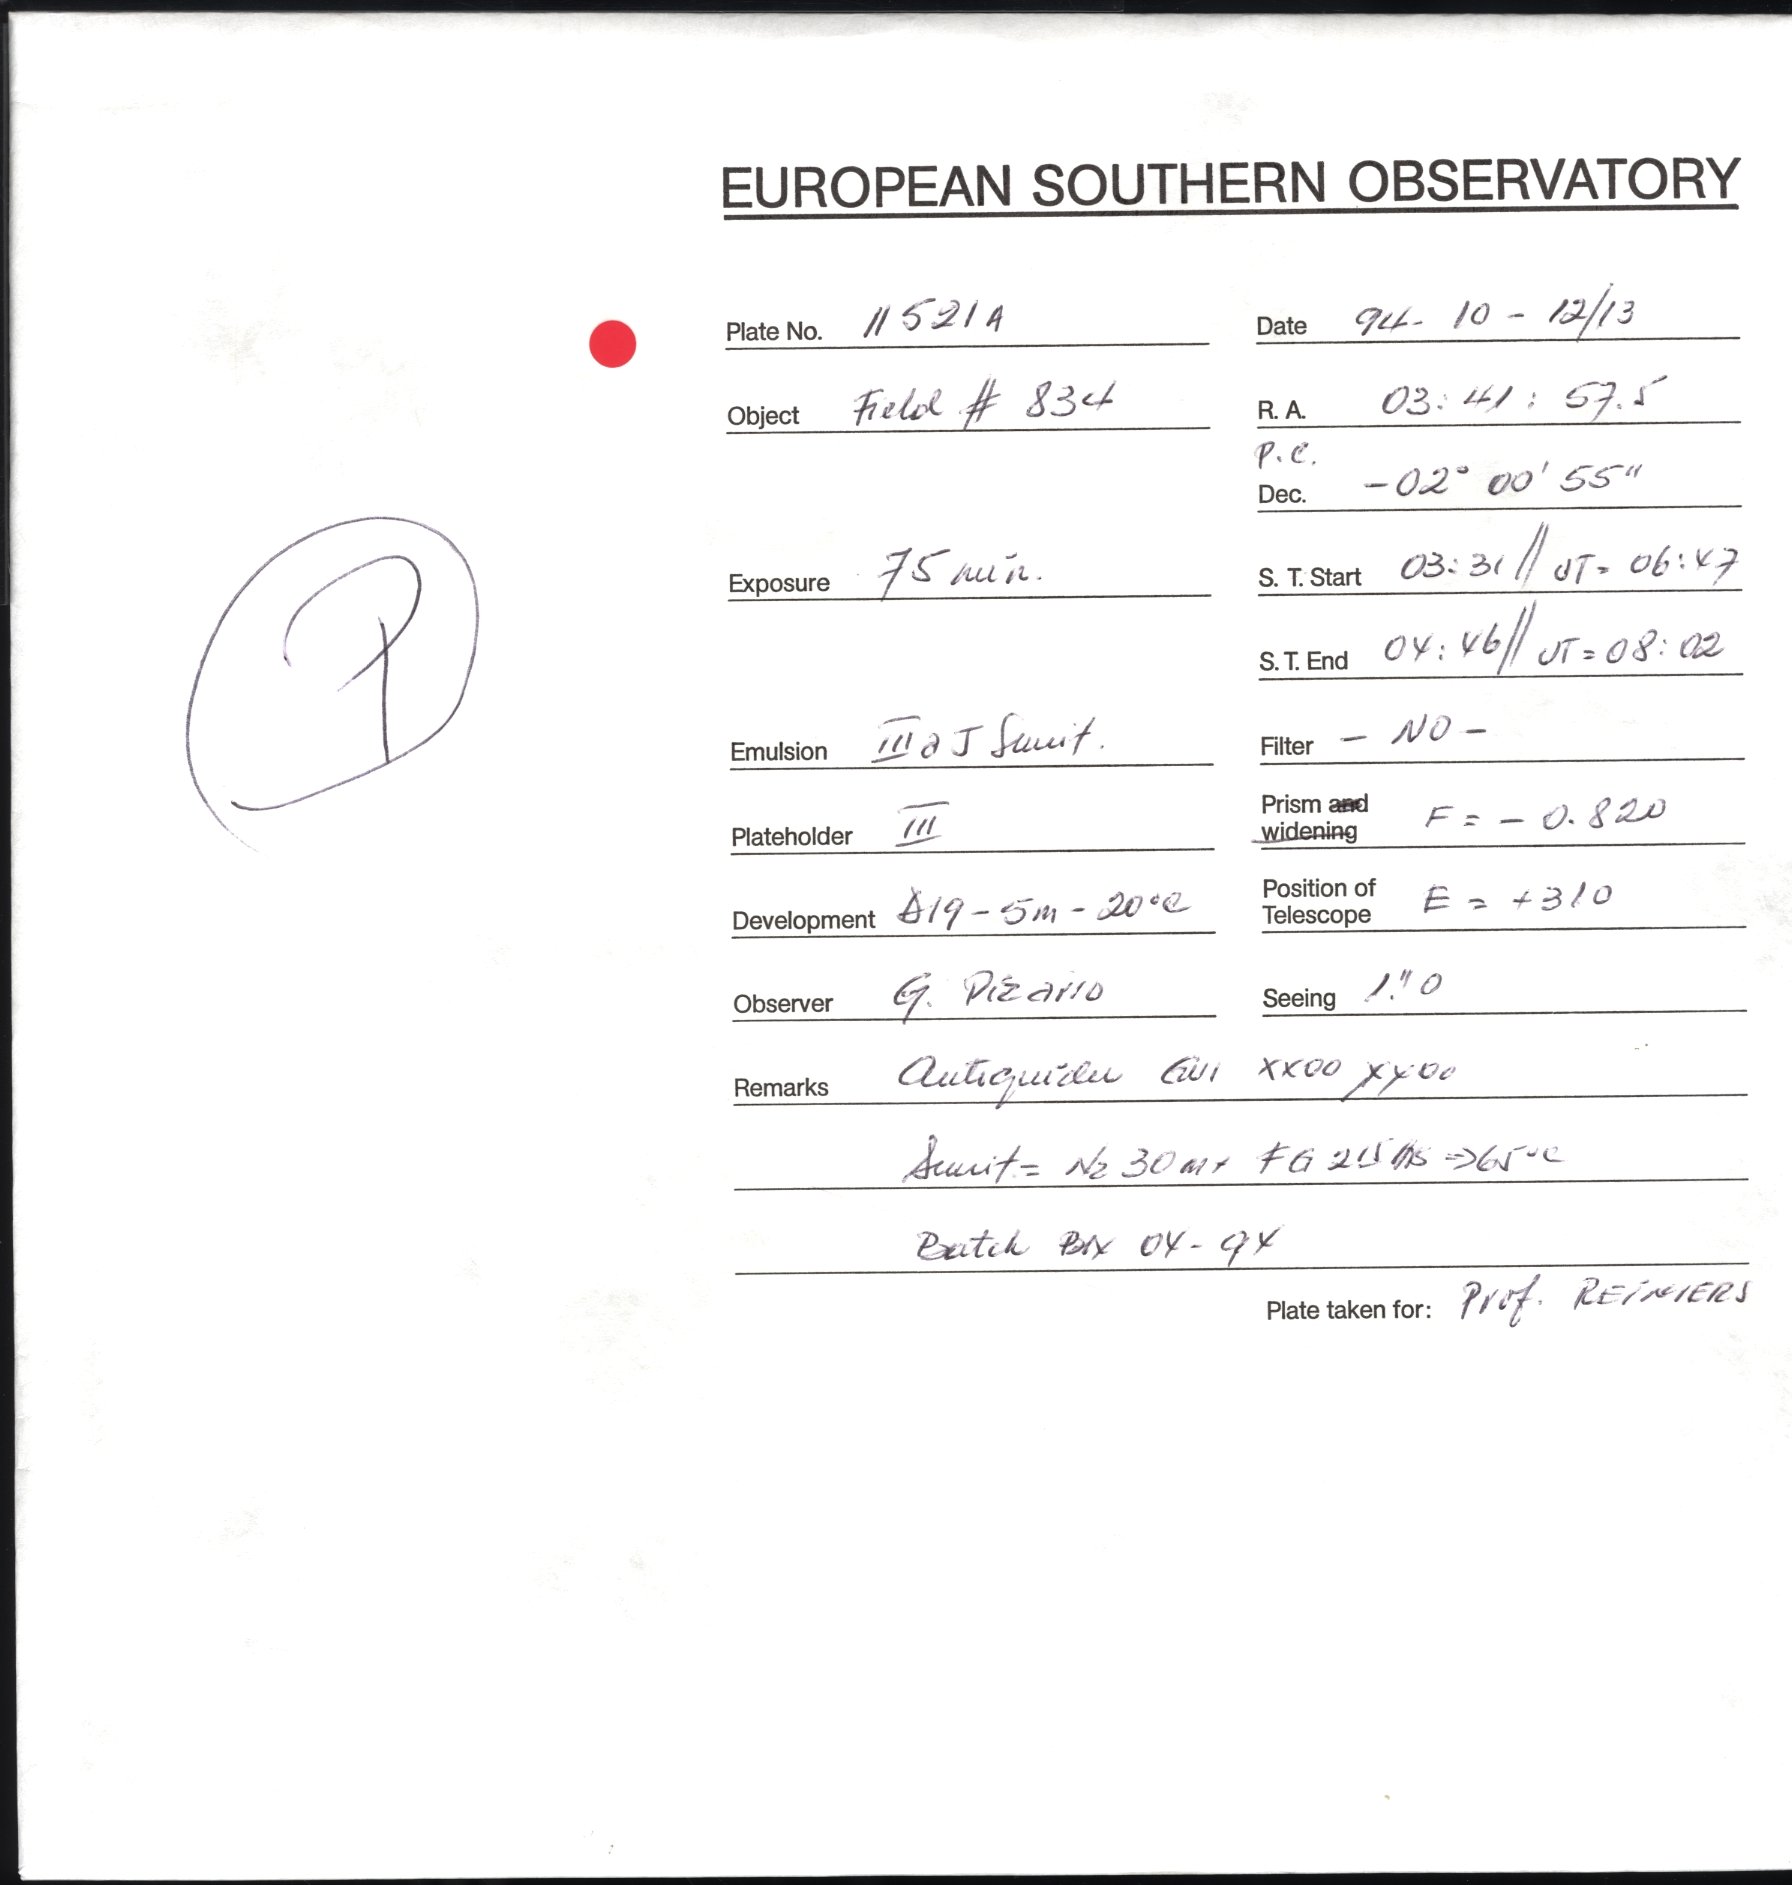 EUROPEAN SOUTHERN OBSERVATORY
Plate No. 11521A
Date 94-10-12/13
Object Field # 834
R. A. 03:41:57.5
P.C.
Dec. -02° 00' 55"
Exposure 75 min.
S. T. Start 03:31 // UT= 06:47
S. T. End 04:46 // UT=08:02
Emulsion III a J
Filter - NO -
Plateholder III
Prism and widening F = - 0.820
Development D19-5m-20°C
Position of Telescope E = +310
Observer G. Pizarro
Seeing 1."0
Remarks Autoguider XX00 XY00
N2 30 m + FG 65°C
Batch 04-94
Plate taken for: Prof. REIMERS
P